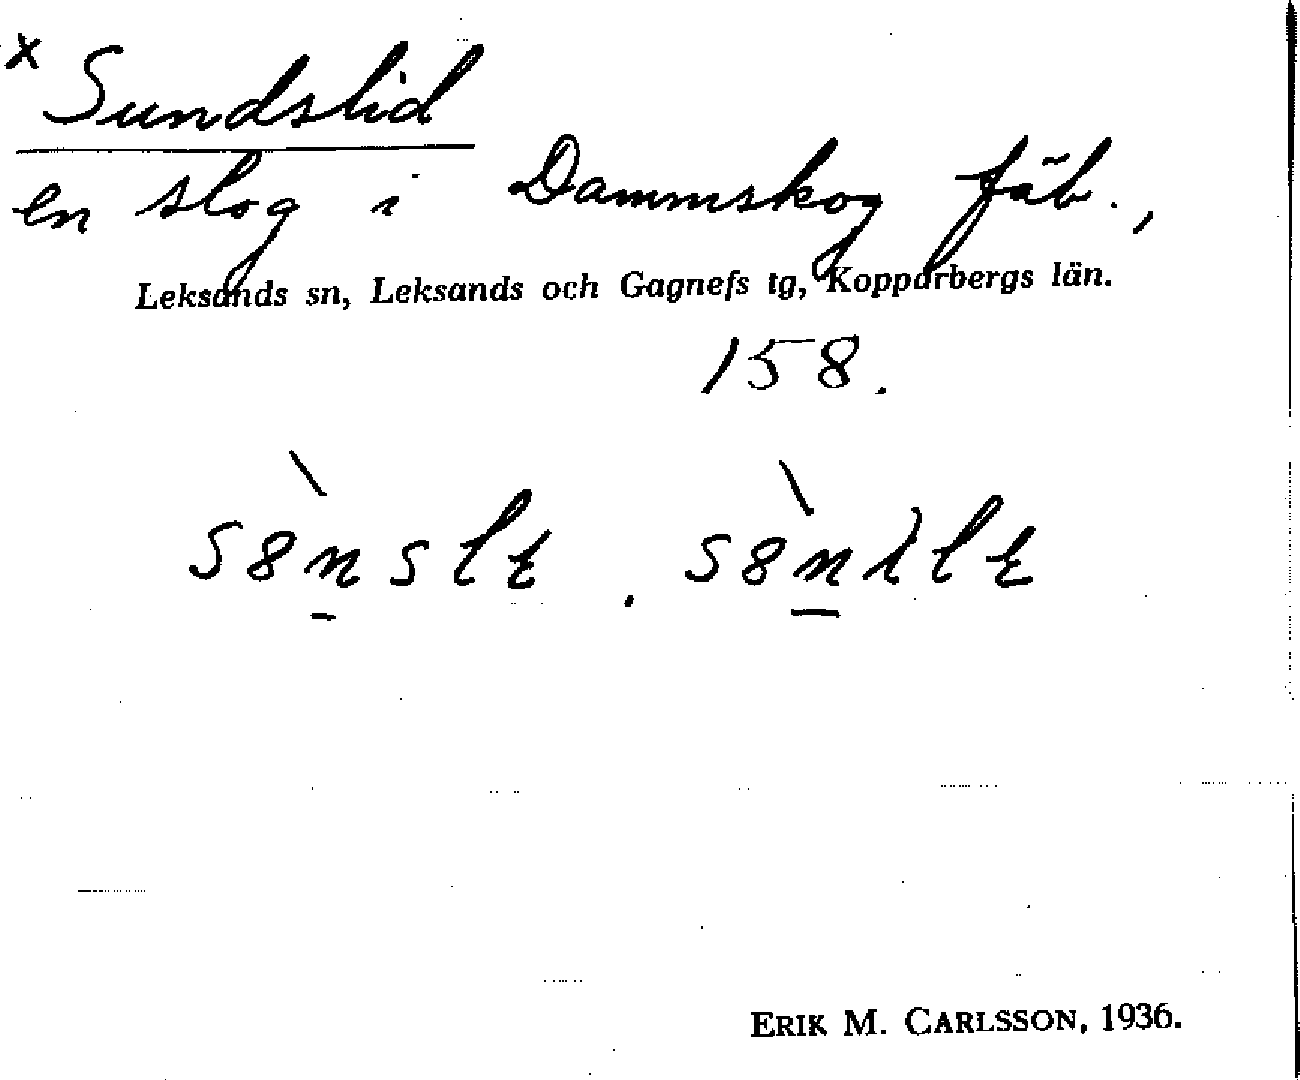 x Sundslid
en slog i Dammskog fäb.,
Leksands sn, Leksands och Gagnefs tg, Kopparbergs län.
158.
ERIK M. CARLSSON, 1936.